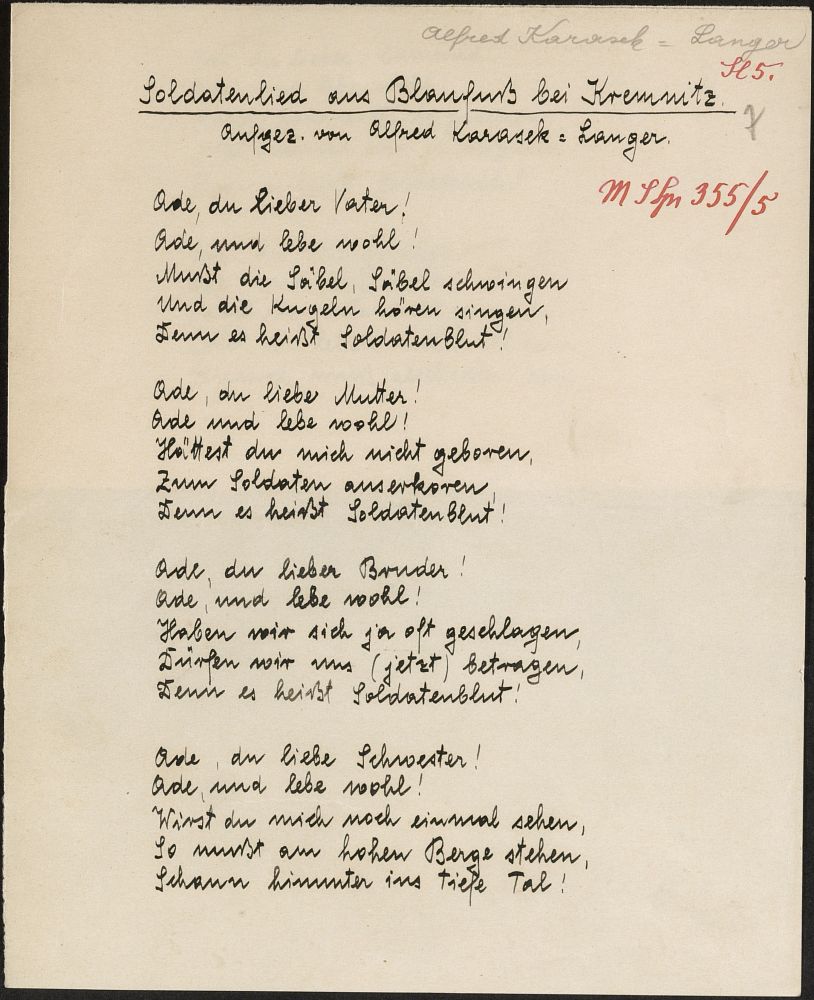 Alfred Karasek = Langer
Sl 5.
Soldatenlied aus Blaufuß bei Kremnitz.
Aufgez. von Alfred Karasek = Langer.
7
M Slg 355/5
Ade, du lieber Vater!
Ade, und lebe wohl!
Mußt die Säbel, Säbel schwingen
Und die Kugeln hören singen,
Denn es heißt Soldatenblut!
Ade, du liebe Mutter!
Ade und lebe wohl!
Hättest du mich nicht geboren,
Zum Soldaten auserkoren,
Denn es heißt Soldatenblut!
Ade, du lieber Bruder!
Ade, und lebe wohl!
Haben wir sich ja oft geschlagen,
Dürfen wir uns (jetzt) betragen,
Denn es heißt Soldatenblut!
Ade, du liebe Schwester!
Ade, und lebe wohl!
Wirst du mich noch einmal sehen,
So mußt am hohen Berge stehen,
Schaun hinunter ins tiefe Tal!